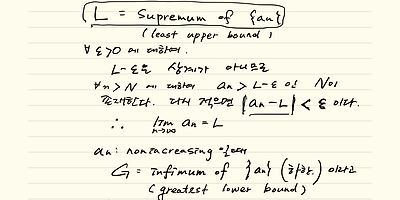 L = Supremum of {an}
(least upper bound)
∀ε>0 에 대하여.
L-ε은 상계가 아니므로
∀n>N 에 대하여 an > L-ε 인 N이
존재한다. 다시 적으면 |an-L| < ε 이다.
∴ lim n→∞ an = L
an: nonincreasing 일때
G = infimum of {an} (하한) 이라고
(greatest lower bound)